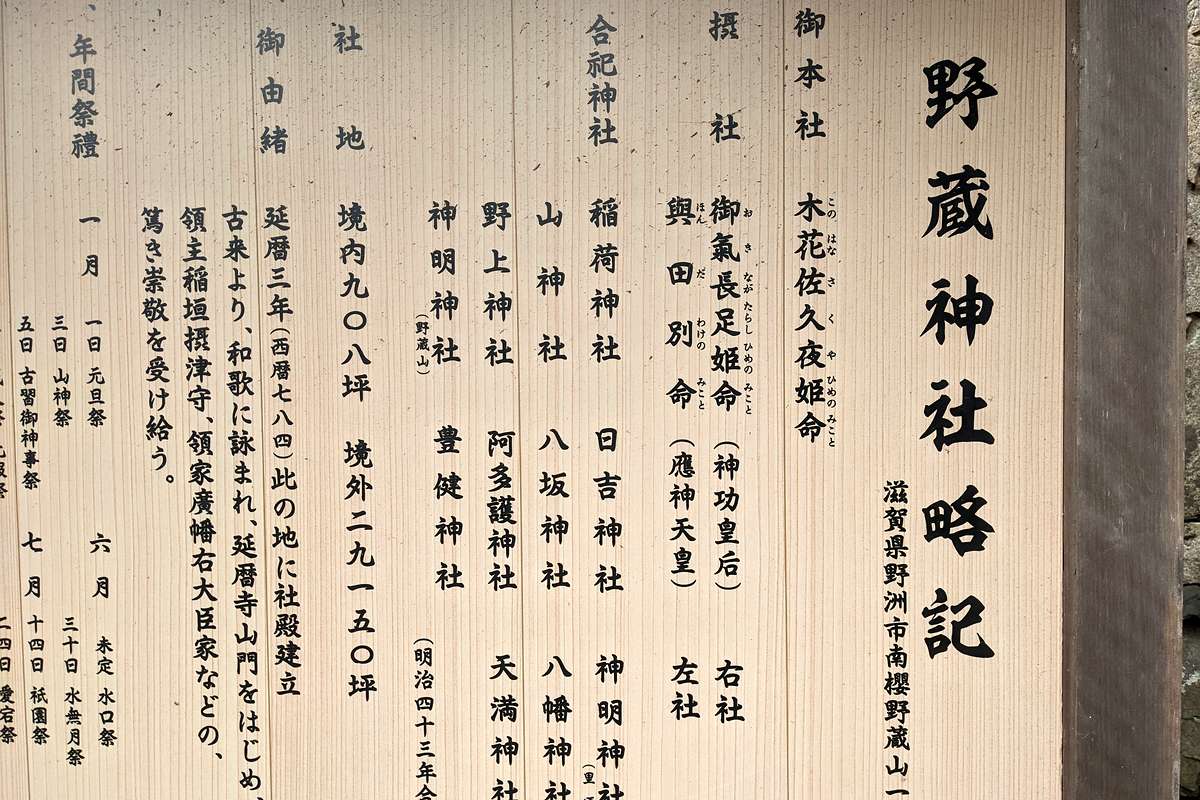 野蔵神社略記
滋賀県野洲市南櫻野蔵山一
御本社 木花佐久夜姫命
このはなさくやひめのみこと
摂社 御氣長足姫命(神功皇后) 右社
おきながたらしひめのみこと
與田別命(應神天皇) 左社
ほんだわけのみこと
合祀神社 稲荷神社 日吉神社 神明神社
(里
山神社 八坂神社 八幡神社
野上神社 阿多護神社 天満神社
神明神社 豊健神社
(野蔵山) (明治四十三年合
社地 境内九〇八坪 境外二九一五〇坪
御由緒 延暦三年(西暦七八四)此の地に社殿建立
古来より、和歌に詠まれ、延暦寺山門をはじめ、
領主稲垣摂津守、領家廣幡右大臣家などの、
篤き崇敬を受け給う。
、年間祭禮 一月 一日 元旦祭 六月 未定 水口祭
三日 山神祭 三十日 水無月祭
五日 古習御神事祭 七月 十四日 祇園祭
二四日 愛宕祭